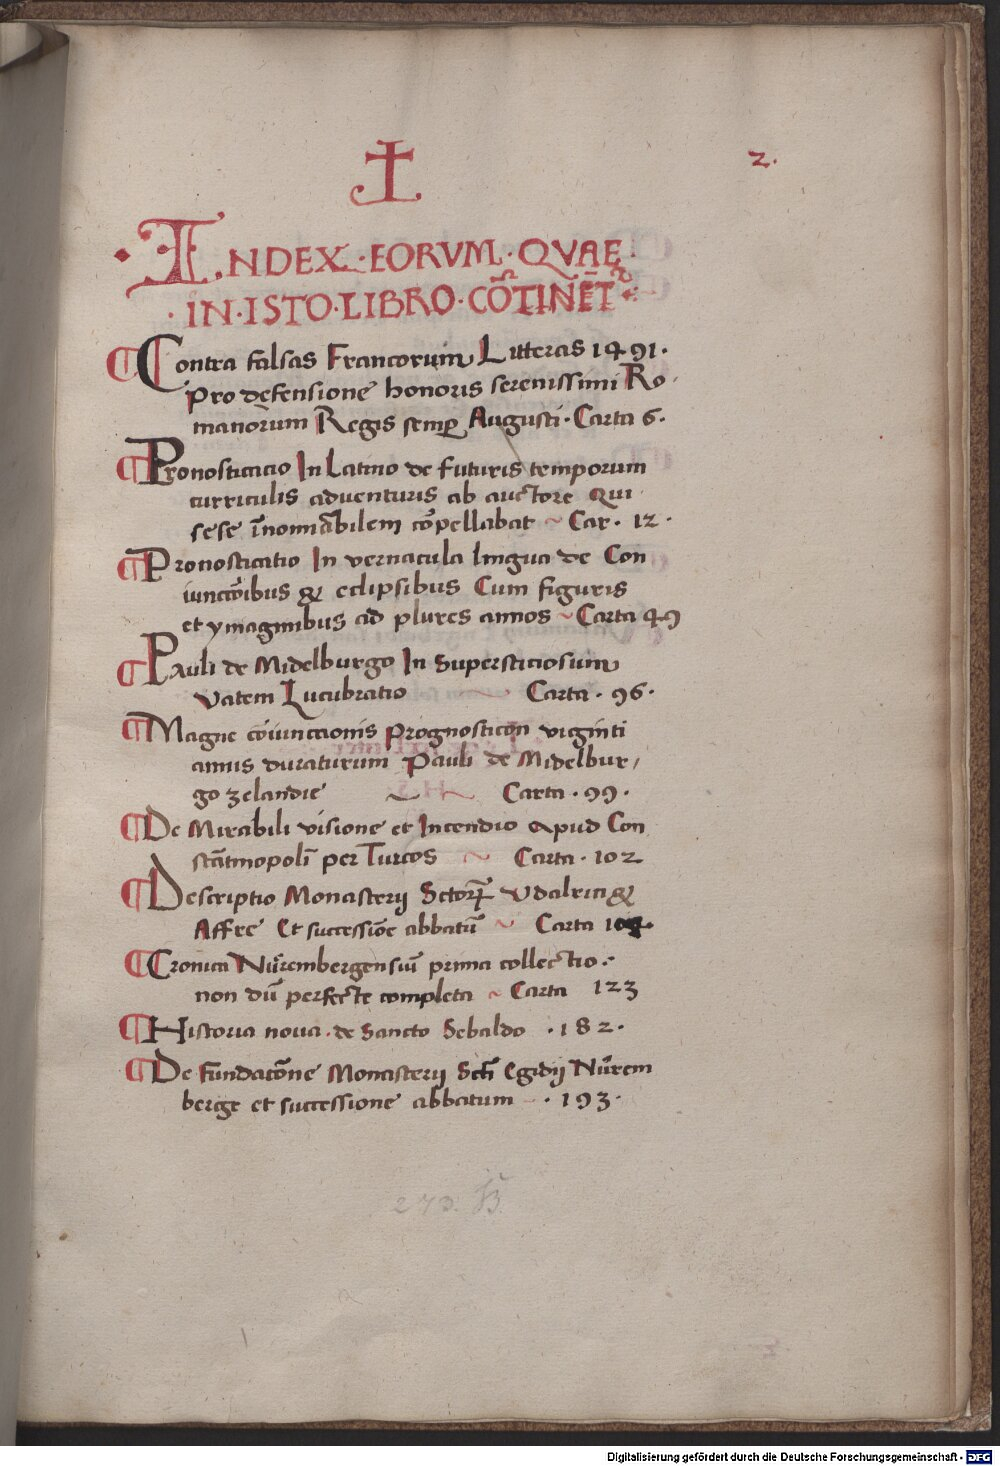 2.
INDEX · EORVM · QVAE ·
· IN · ISTO · LIBRO · CO͂TINE͂T
¶ Contra falsas Francorum Litteras 1491 ·
pro defensione honoris serenissimi Ro ·
manorum Regis semꝑ Augusti · Carta 6 ·
¶ Pronosticacio In Latino de futuris temporum
curriculis adventuris ab auctore Qui ·
sese īnomīabilem cōpellabat ~ Car · 12 ·
¶ Pronosticatio In vernacula lingua de Con
iunctōibus & eclipsibus Cum figuris
et ymaginibus ad plures annos ~ Carta 49
¶ Pauli de Midelburgo In Supersticiosum
Vatem Lucubratio ~ Carta · 96 ·
¶ Magne cōiunccionis prognosticon viginti
annis duraturum Pauli de Midelbur /
go zelandie ~ ~ Carta · 99 ·
¶ De Mirabili visione et Incendio apud Con
stātinopolī per Turcos ~ Carta · 102
¶ Descriptio Monasterij Sctorꝝ Vdalrici &
Affre Et successiōe abbatū ~ Carta
¶ Cronica Nurembergensiū prima collectio :
non dū perfecte completa ~ Carta 123
¶ Historia noua · de Sancto Sebaldo · 182 ·
¶ De fundatōne Monasterij Scti Egidij Nurem
berge et successione abbatum – · 193 ·
273.
Digitalisierung gefördert durch die Deutsche Forschungsgemeinschaft - DFG